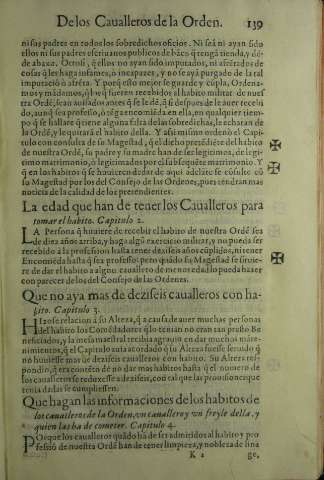 De los Caualleros de la Orden. 139
ni sus padres en todos los sobredichos oficios. Ni seã ni ayan sido
ellos ni sus padres escriuanos publicos de
de abaxo. Otrosi, q̃ ellos no ayan sido imputados, ni
cosas q̃ les haga infames, ò incapazes, y no se aya purgado de la tal
se guarde y cũpla, Ordena-
mos y mãdamos, q̃ los q̃ fueren recebidos al habito militar de nues-
tra Ordẽ, sean auisados antes q̃ se le dẽ, q̃ si despues de le auer recebi
do, aunq̃ sea professo, ò tẽga encomiẽda en ella, en qualquier tiem-
po q̃ se hallare q̃ tiene alguna falta de las sobredichas, le echarã de
la Ordẽ, y le quitarã el habito della. Y assi mismo ordenò el Capi-
tulo con consulta de su Magestad, q̃ el dicho pretẽdiẽte del habito
de nuestra Ordẽ, su padre y su madre han de ser legitimos, de legi-
timo matrimonio, ò legitimados por el subsequẽte matrimonio. Y
q̃ en los habitos q̃ se huuieren de dar de aqui adelãte se cõsulte cõ
su Magestad por los del Consejo de las Ordenes, pues tendran mas
noticia de la calidad de los pretendientes.
La edad que han de tener los Caualleros para
tomar el habito. Capitulo 2.
LA Persona q̃ huuiere de recebir el habito de nuestra Ordẽ sea
de diez años arriba, y haga algũ exercicio militar, y no pueda ser
recebido à la profession hasta tener dezisiete años cũplidos, ni tener
Encomiẽda hasta q̃ sea professo: pero quãdo su Magestad se siruie-
re de dar el habito a algun cauallero de menos edad lo pueda hazer
con parecer de los del Consejo de las Ordenes.
Que no aya mas de dezíseis caualleros con ha-
bito. Capitulo 3.
Hizose relacion à su Alteza, q̃ a causa de auer muchas personas
del habito los Comẽdadores q̃ lo tenian no eran tan presto Be
neficiados, y la mesa maestral recibia agrauio en dar muchos mãte-
nimientos, q̃ el Capitulo auia acordado q̃ su Alteza fuesse seruido q̃
no huuiesse mas de dezíseis caualleros con habito. Su Alteza res-
pondio, q̃ era contẽto de no dar mas habitos hasta q̃ el numero de
los caualleros se reduxesse a dezíseis, con tal que las prouisiones que
tenia dadas se cumpliessen.
Que hagan las informaciones de los habitos de
los caualleros de la Orden, vn cauallero y vn freyle della, y
quien las ha de cometer. Capitulo 4.
Porque los caualleros quãdo hã de ser admitidos al habito y pro
fession de nuestra Ordẽ han de tener limpieza, y nobleza de sina
K 2 ge,